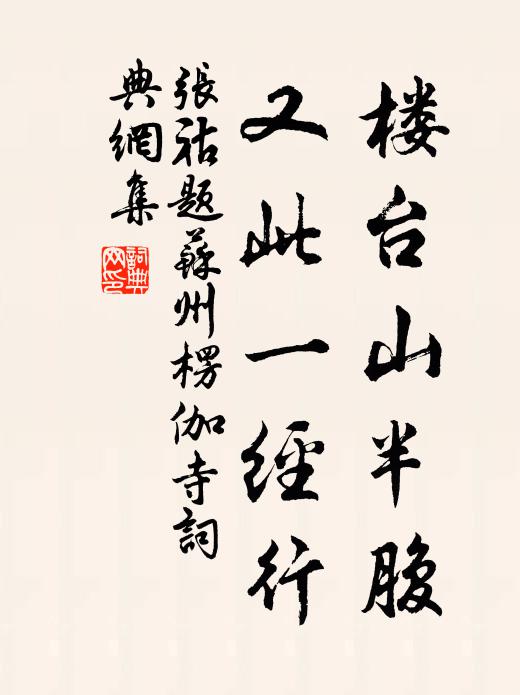 楼台山半腹
又此一經行
張祜題蘇州楞伽寺詞
典網集
詞典
网印